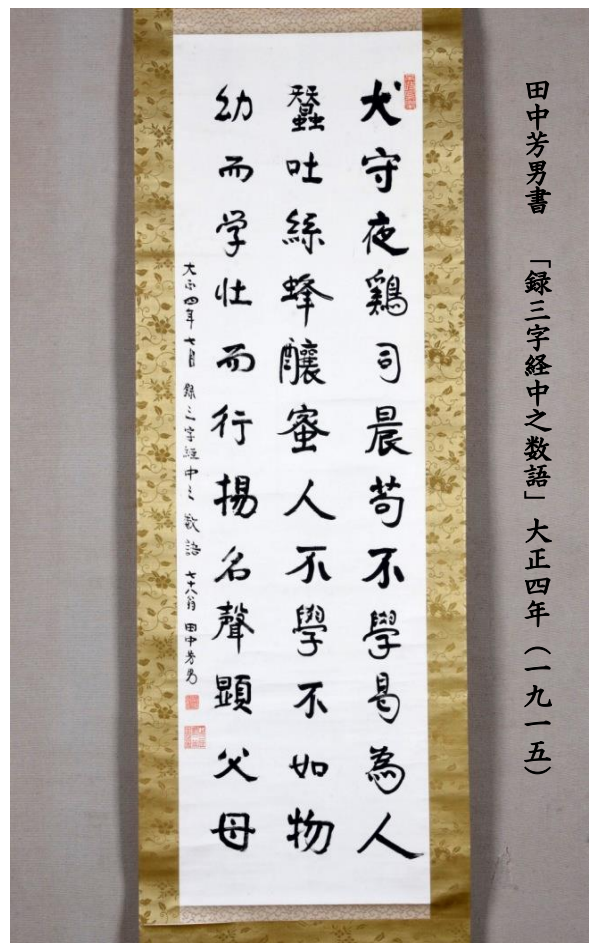 田中芳男書 「録三字経中之数語」大正四年(一九一五)
犬守夜鶏司晨苟不學曷為人
蠶吐絲蜂釀蜜人不學不如物
幼而学壮而行揚名聲顕父母
大正四年七月 録三字經中之數語 七十八翁 田中芳男